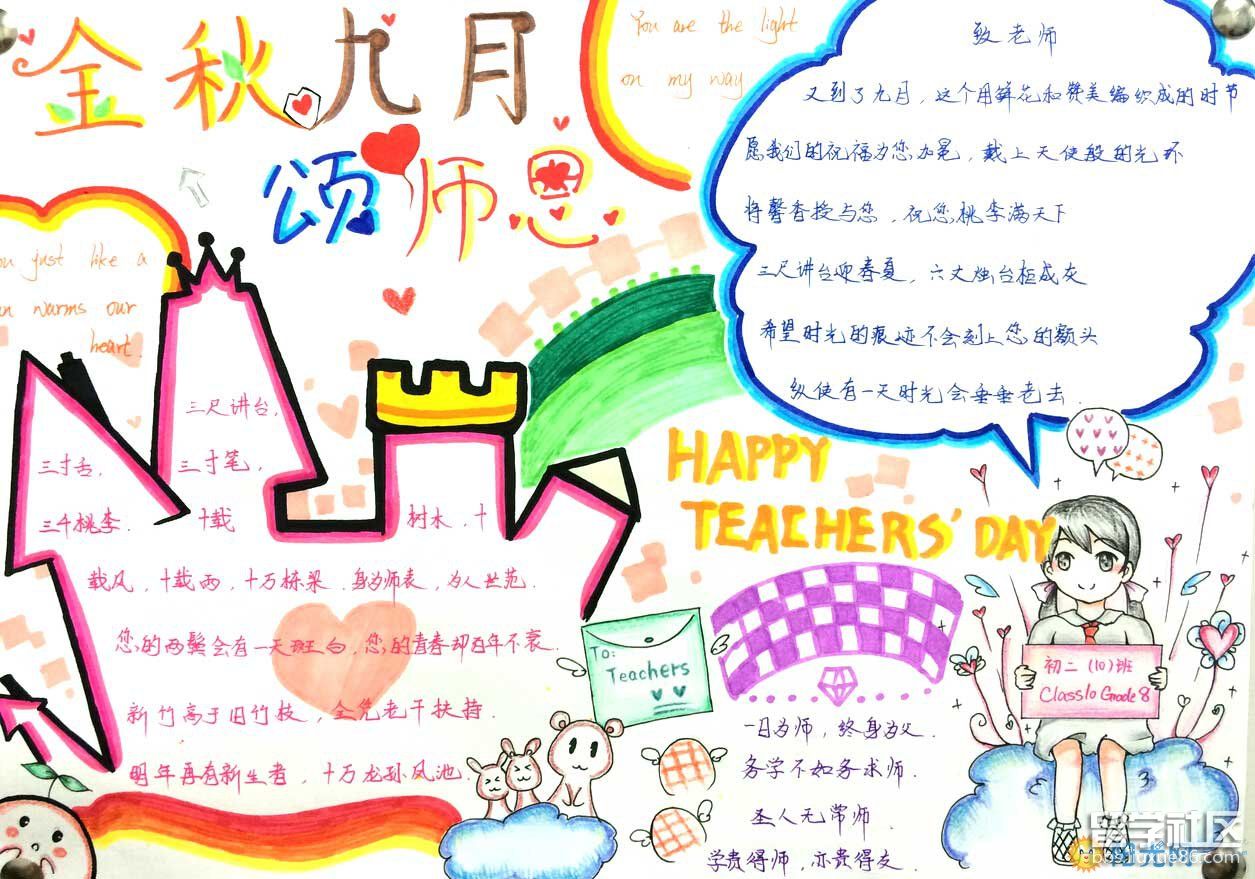 金秋九月
颂师恩
You are the light
on my way
致老师
又到了九月，这个用鲜花和赞美编织成的时节
愿我们的祝福为您加冕，戴上天使般的光环
将馨香授与您，祝您桃李满天下
三尺讲台迎春夏，六丈烛台柜成灰
希望时光的痕迹不会刻上您的额头
纵使有一天时光会垂垂老去.
you just like a
warms our
heart.
三尺讲台,
三寸舌,
三寸笔,
三千桃李.
十载
树木,十
载风,十载雨,十万栋梁.身为师表,为人世范.
您的两鬓会有一天斑白,您的青春却百年不衰.
新竹高于旧竹枝,全凭老干扶持.
明年再有新生者,十万龙孙凤池.
HAPPY
TEACHERS' DAY
To:
Teachers
初二(10)班
Class10 Grade8
一日为师,终身为父.
务学不如务求师.
圣人无常师.
学贵得师,亦贵得友.
留学社区